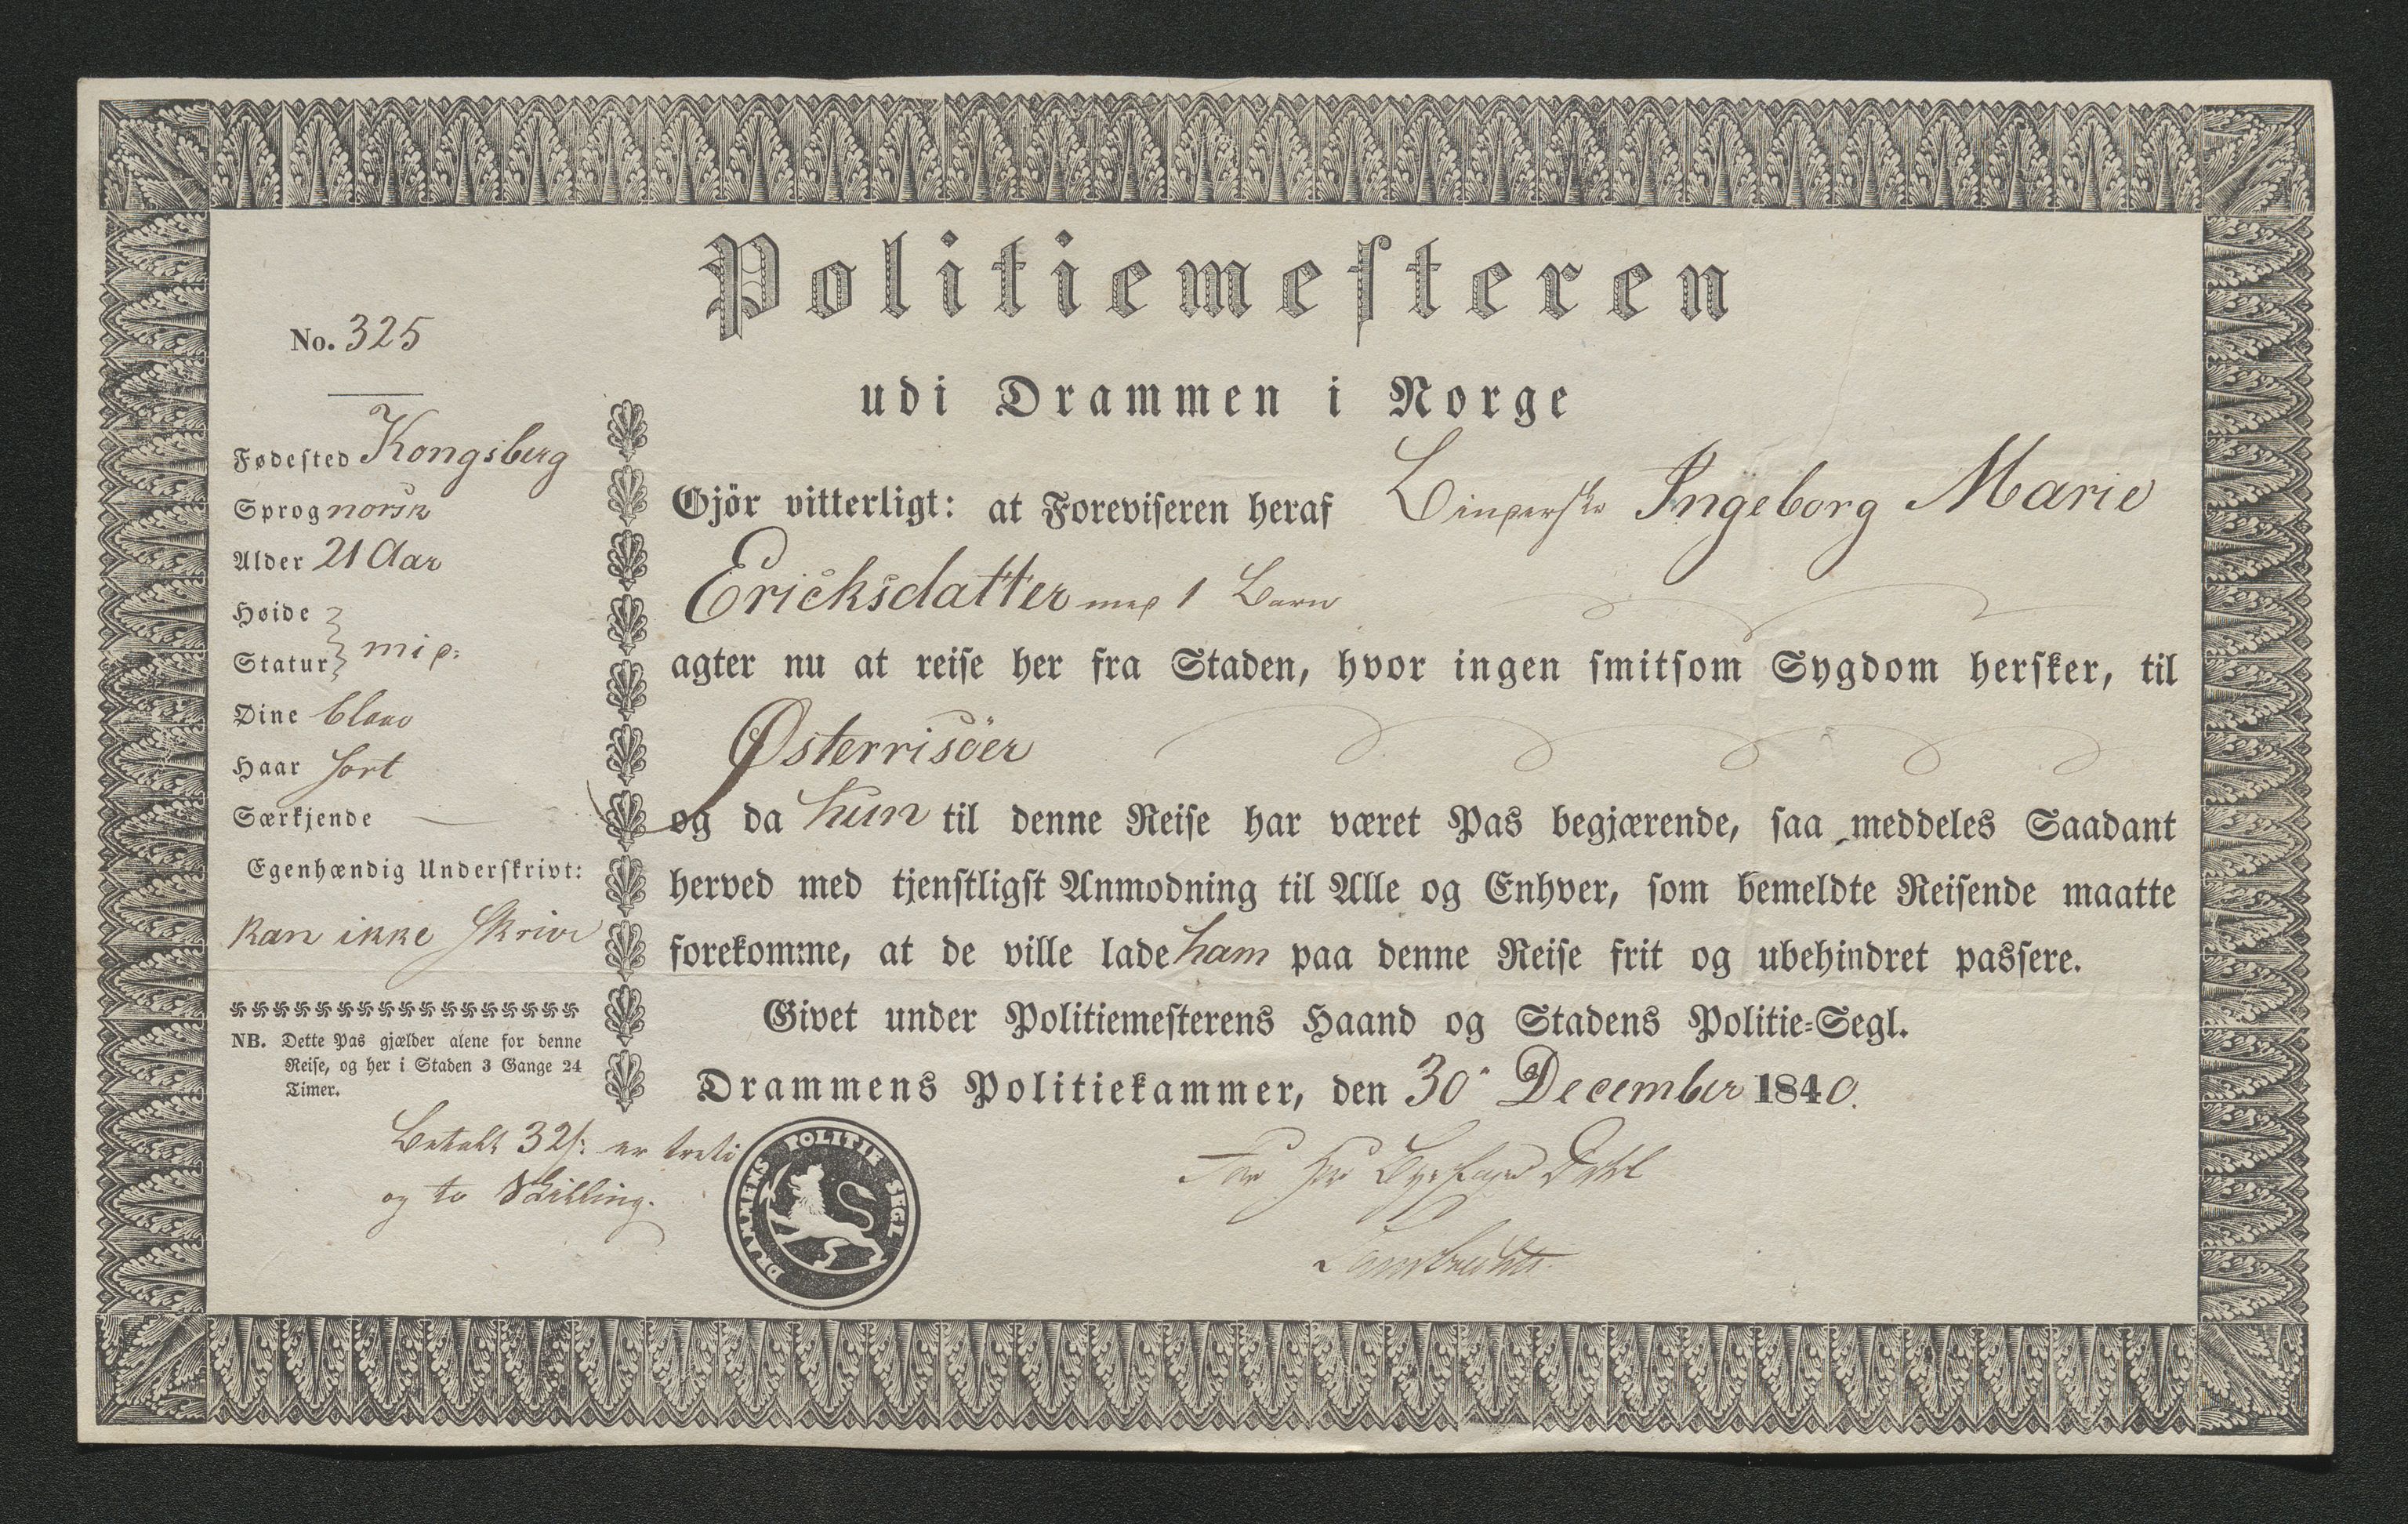 Politiemesteren
udi Drammen i Norge
No. 325
Fødested Kongsberg
Sprog norsk
Alder 21 Aar
Høide
Statur mid:
Øine blaae
Haar sort
Særkjende —
Egenhændig Underskrivt:
kan ikke skrive
NB. Dette Pas gjælder alene for denne
Reise, og her i Staden 3 Gange 24
Timer.
Betalt 32 s: er treti
og to Skilling.
Gjör vitterligt: at Foreviseren heraf Ingeborg Marie
Ericksdatter med 1 Barn
agter nu at reise her fra Staden, hvor ingen smitsom Sygdom hersker, til
Østerrisöer
og da hun til denne Reise har været Pas begjærende, saa meddeles Saadant
herved med tjenstligst Anmodning til Alle og Enhver, som bemeldte Reisende maatte
forekomme, at de ville lade ham paa denne Reise frit og ubehindret passere.
Givet under Politiemesterens Haand og Stadens Politie-Segl.
Drammens Politiekammer, den 30 December 1840.
DRAMMENS POLITIE SEGL